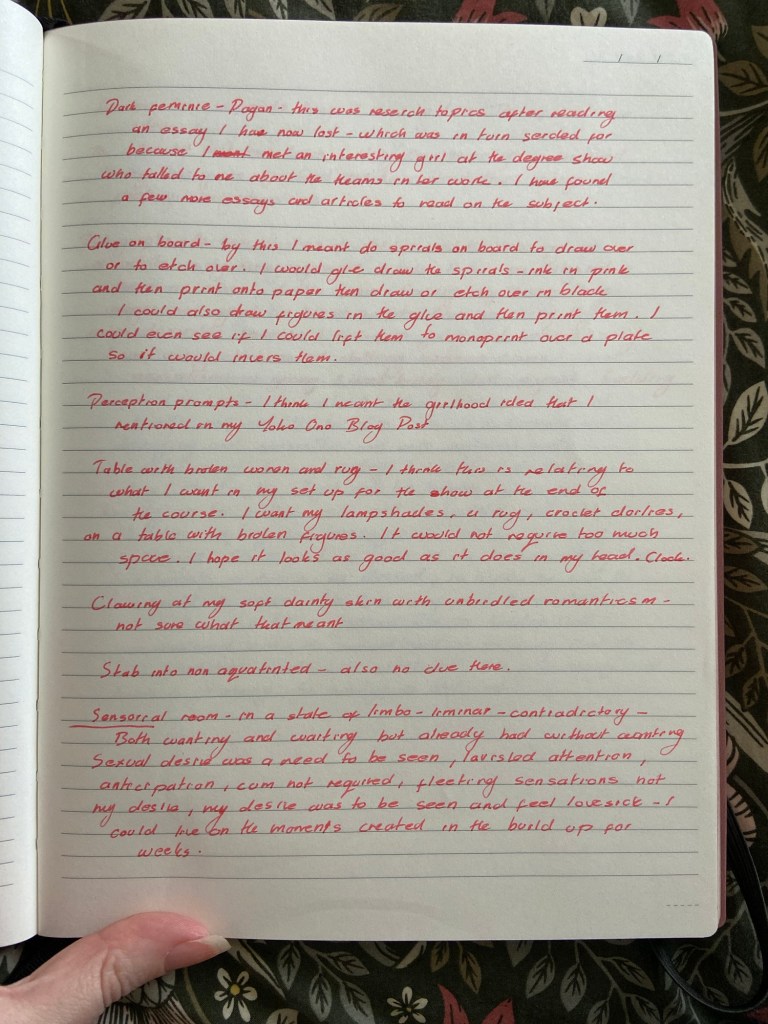 Dark feminie - Pagan - this was reserch topics after reading
an essay I have now lost - which was in turn serched for
because I met an interesting girl at the degree show
who talked to me about the theams in her work. I have found
a few more essays and articles to read on the subject.
Glue on board - by this I meant do spirals on board to draw over
or to etch over. I would glue draw the spirals - ink in pink
and then print onto paper then draw or etch over in black
I could also draw figures in the glue and then print them. I
could even see if I could lift them to monoprint over a plate
so it would invers them.
Perception prompts - I think I meant the girlhood idea that I
mentioned in my Yoko Ono Blog Post
Table with broken women and rug - I think this is relating to
what I want in my set up for the show at the end of
the course. I want my lampshades, a rug, crochet doilies,
on a table with broken figures. It would not require too much
space. I hope it looks as good as it does in my head. Clock.
Clawing at my soft dainty skin with unbridled romanticism -
not sure what that meant
Stab into non aquatinted - also no clue there.
Sensorical room - in a state of limbo - liminar - contradictory -
Both wanting and waiting but already had without wanting
Sexual desire was a need to be seen, lavished attention,
anticipation, cum not required, fleeting sensations not
my desire, my desire was to be seen and feel lovesick - I
could live on the moments created in the build up for
weeks.